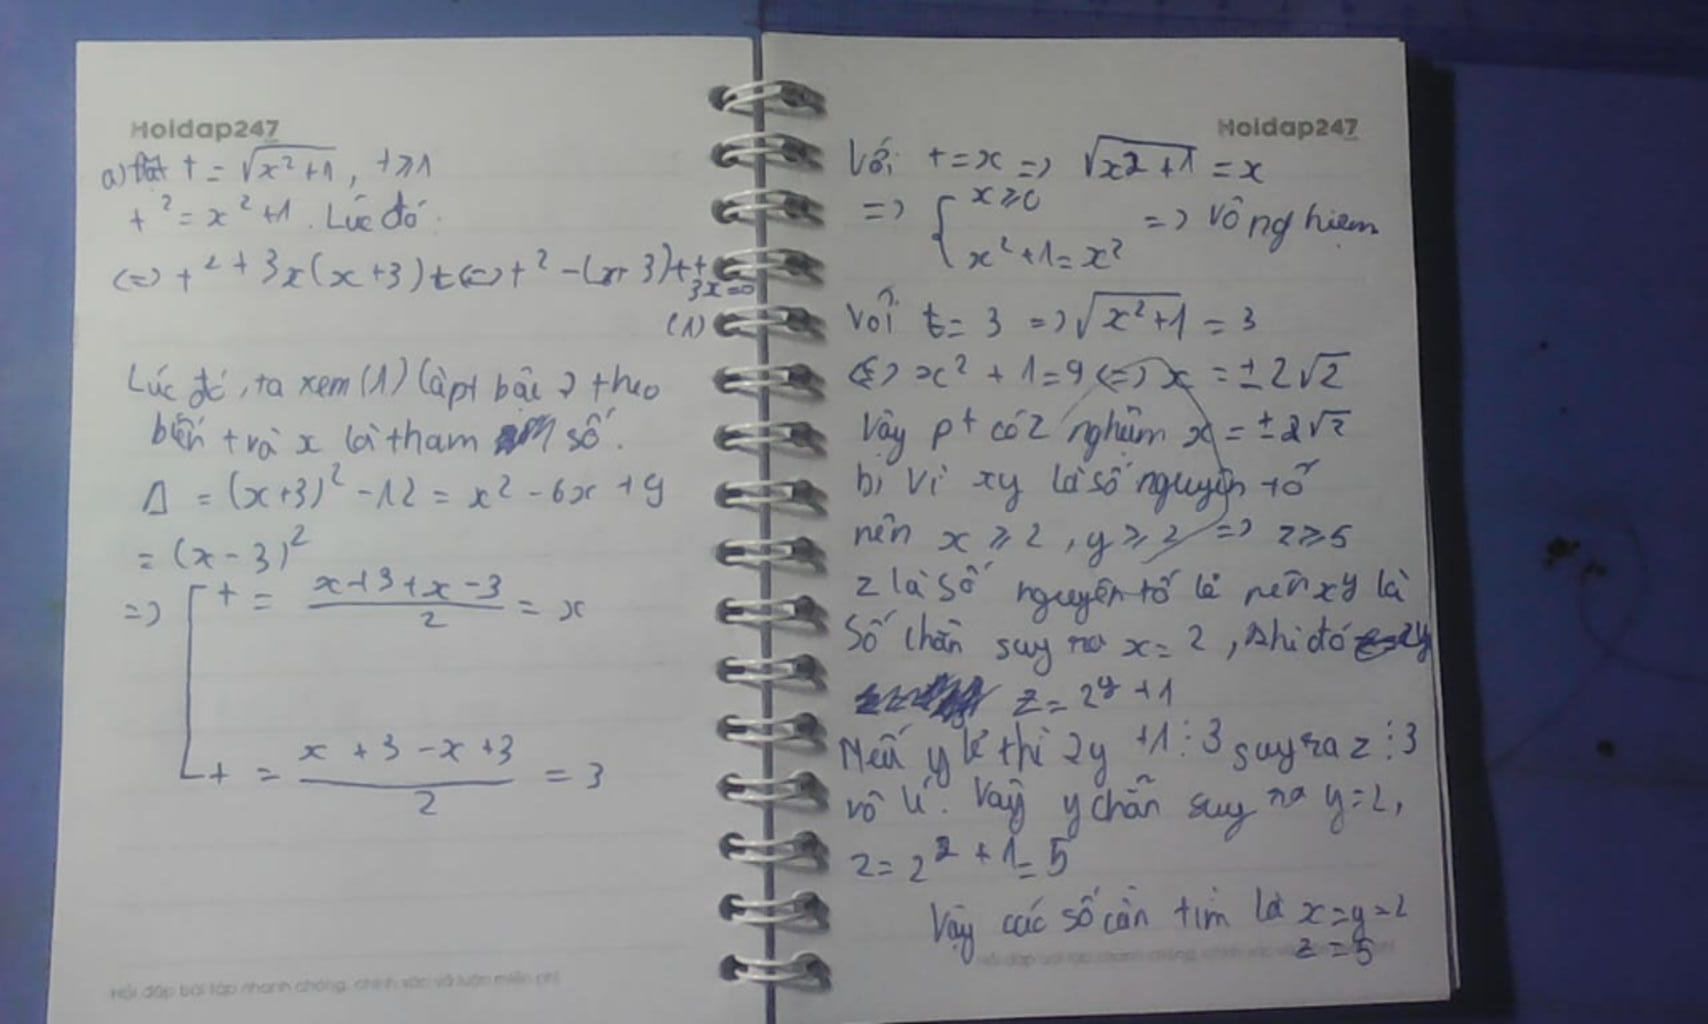 Hoidap247
a) Đặt t = √(x² + 1), t ≥ 1
t² = x² + 1. Lúc đó
(=) t² + 3x(x + 3) t (=) t² - (x + 3)t +
3x = 0
(1)
Lúc đó, ta xem (1) là pt bậc 2 theo
biến t và x là tham số.
Δ = (x + 3)² - 12 = x² - 6x + 9
= (x - 3)²
=> [ t = (x + 3 + x - 3)/2 = x
t = (x + 3 - x + 3)/2 = 3
Hỏi đáp bài tập nhanh chóng, chính xác và luôn miễn phí
Hoidap247
Với t = x => √(x2 + 1) = x
=> { x ≥ 0
x² + 1 = x² => vô nghiệm
Với t = 3 => √(x² + 1) = 3
(=) x² + 1 = 9 (=) x = ± 2√2
Vậy pt có 2 nghiệm x = ± 2√2
b, Vì xy là số nguyên tố
nên x ≥ 2, y ≥ 2 => z ≥ 5
z là số nguyên tố lẻ nên xy là
số chẵn suy ra x = 2, khi đó
z = 2^y + 1
Nếu y lẻ thì 2y + 1 ⋮ 3 suy ra z ⋮ 3
vô lí. Vậy y chẵn suy ra y = 2,
z = 2² + 1 = 5
Vậy các số cần tìm là x = y = 2
z = 5